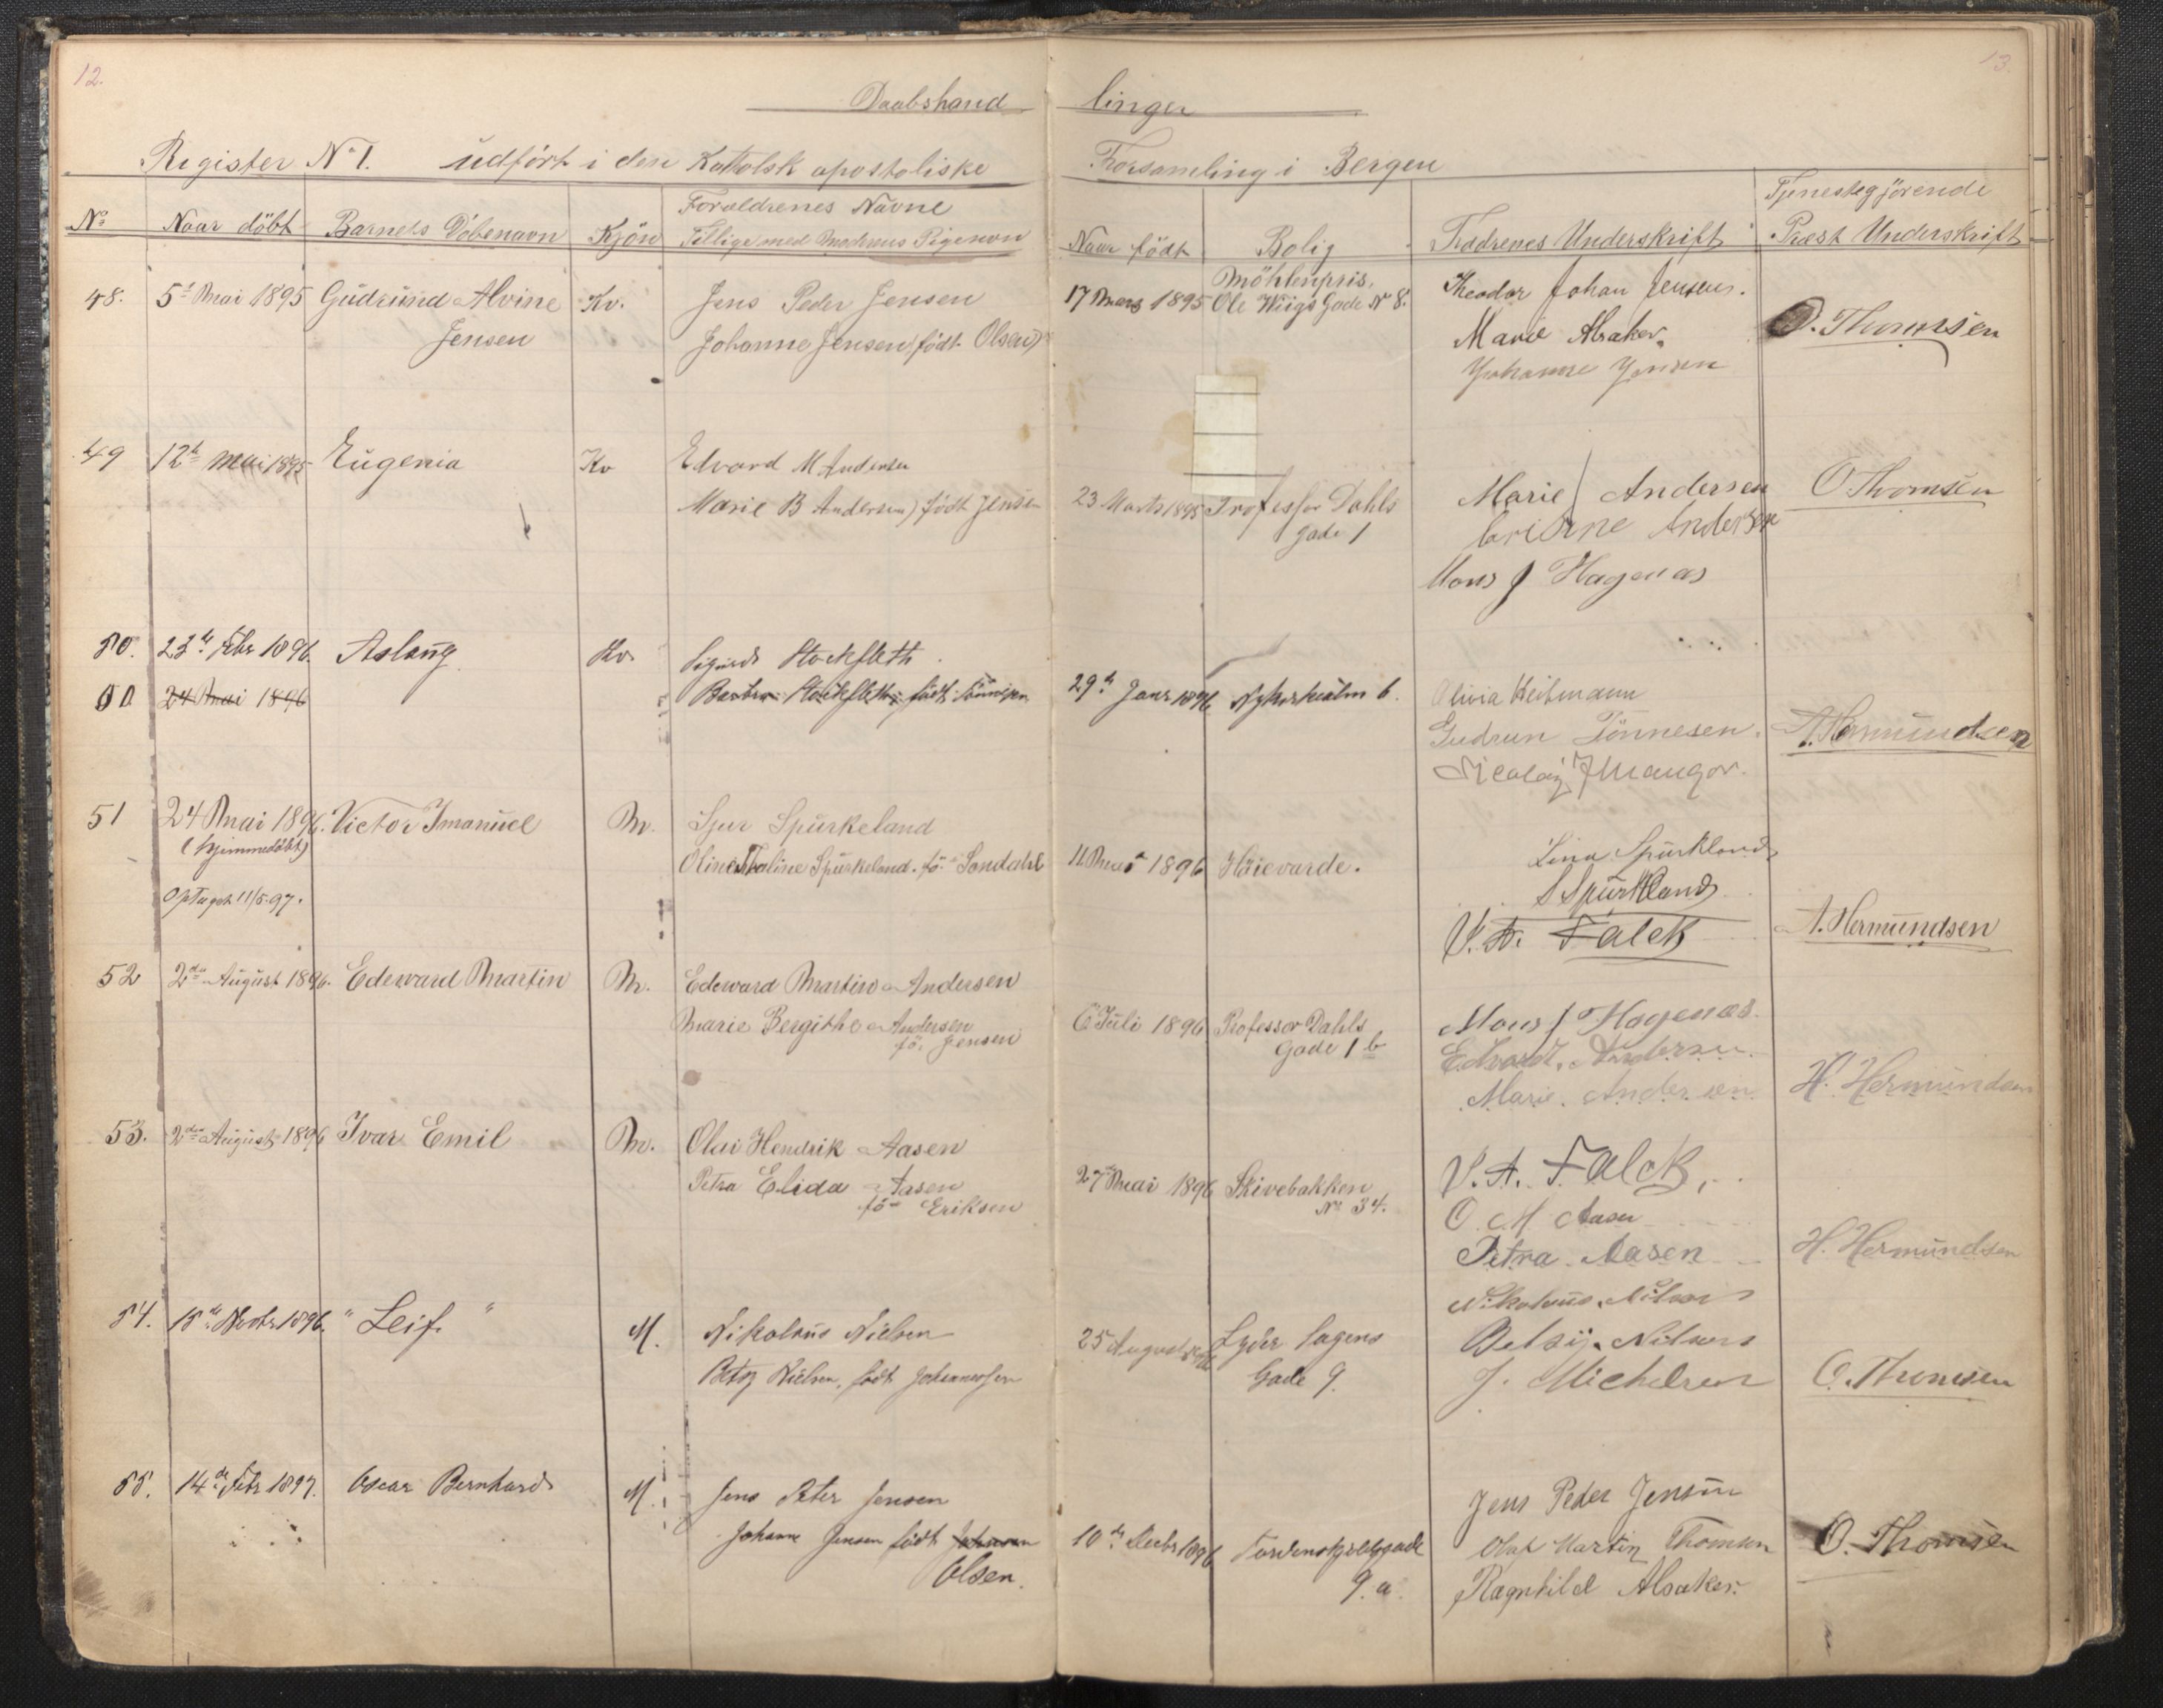 12.
13.
Daabshand linger
Register No 1. udført i den Katolsk apostoliske Forsamling i Bergen
No
Naar döbt
Barnets Döbenavn
Kjön
Foraeldrenes Navne
Tillige med Moderens Pigenavn
Naar födt
Bolig
Faddrenes Underskrift
Tjenestegjörende
Præst Underskrift
48. 5t Mai 1895 Gudrund Alvine Kv. Jens Peder Jensen
Jensen Johanne Jensen (födt Olsen)
17 Mars 1895
Möhlenpris.
Ole Wiigs Gade No 8.
Theodor Johan Jensen.
Marie Alsaker.
Johanne Jensen
O. Thomsen
49 12te Mai 1895 Eugenia Kv Edvard M Andersen
Marie B Andersen) födt Jensen
23 Marts 1895 Professor Dahls
Gade 1
Marie Andersen
Andersen
Mons J Hagenas
O Thomsen
50. 23de Febr 1896. Aslaug Kv. Sigurd Stockfleth
24 Mai 1896
Stockfleth, födt
29de Janr 1896 6.
Olivia Heitmann
Gudrun Tönnesen.
Nicolay
A. Hermundsen
51 24 Mai 1896. Victor Imanuel M. Sjur Spurkeland
(hjemmedöbt)
Optaget 11/5-97.
Spurkeland. fö. Sondahl
11 Mai 1896 Höievarde.
Lina Spurkland
S Spurkland
V. A. Falck
A. Hermundsen
52 2den August 1896. Edeward Martin M. Edeward Martin Andersen
Marie Bergithe Andersen
fö. Jensen
6 Juli 1896 Professor Dahls
Gade 1 b
Mons J Hagenas.
Edvard. Andersen.
Marie. Andersen
H. Hermundsen
53. 2den August 1896 Ivar Emil M. Olai Hendrik Aasen
Petra Elida Aasen
fö Eriksen
27de Mai 1896 Skivebakken
No 34.
V. A. Falck.
O. H Aasen
Petra Aasen
H. Hermundsen
54. 15de Novbr 1896. " Leif " M. Nikolaus Nielsen
Betzy Nielsen, födt Johannessen
25 August 1896 Lyder Sagens
Gade 9.
Nikolaus. Nilsen
Betsy. Nilsen
J. Michelsen
O. Thomsen
55. 14de Febr 1897. Oscar Bernhard M. Jens Peter Jensen
Johanne Jensen födt
Olsen.
10de Decbr 1896 Tordenskjoldsgade
9.a.
Jens Peder Jensen
Olaf Martin Thomsen
Ragnhild Alsaker.
O. Thomsen